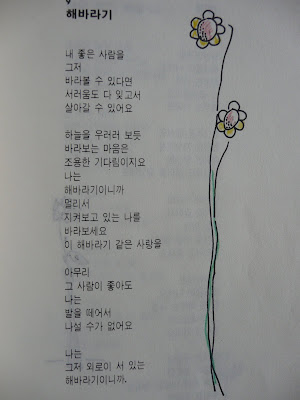 9
해바라기
내 좋은 사람을
그저
바라볼 수 있다면
서러움도 다 잊고서
살아갈 수 있어요
하늘을 우러러 보듯
바라보는 마음은
조용한 기다림이지요
나는
해바라기이니까
멀리서
지켜보고 있는 나를
바라보세요
이 해바라기 같은 사랑을
아무리
그 사람이 좋아도
나는
발을 떼어서
나설 수가 없어요
나는
그저 외로이 서 있는
해바라기이니까.